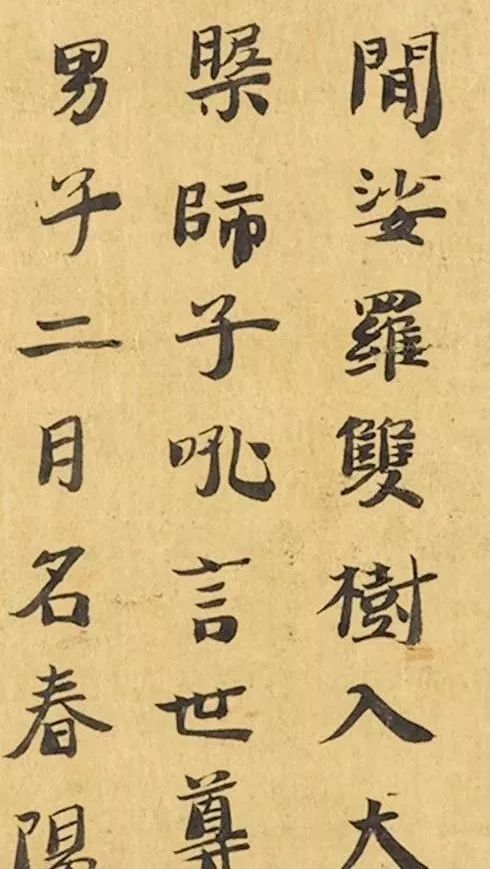 間娑羅雙樹入大
槃師子吼言世尊
男子二月名春陽